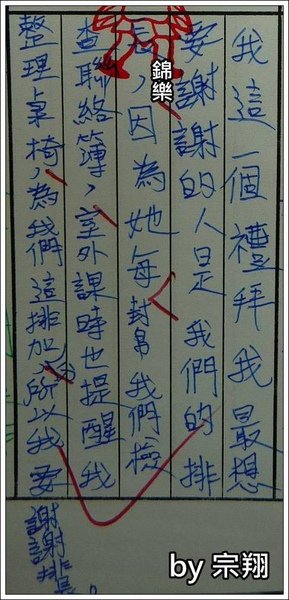 我這一個禮拜我最想
要謝謝的人是我們的排
長,因為她每封帛我們檢
查聯絡簿,室外課時也提醒我
整理桌椅,為我們這排加分,所以我要
謝謝排長。
錦樂
by 宗翔